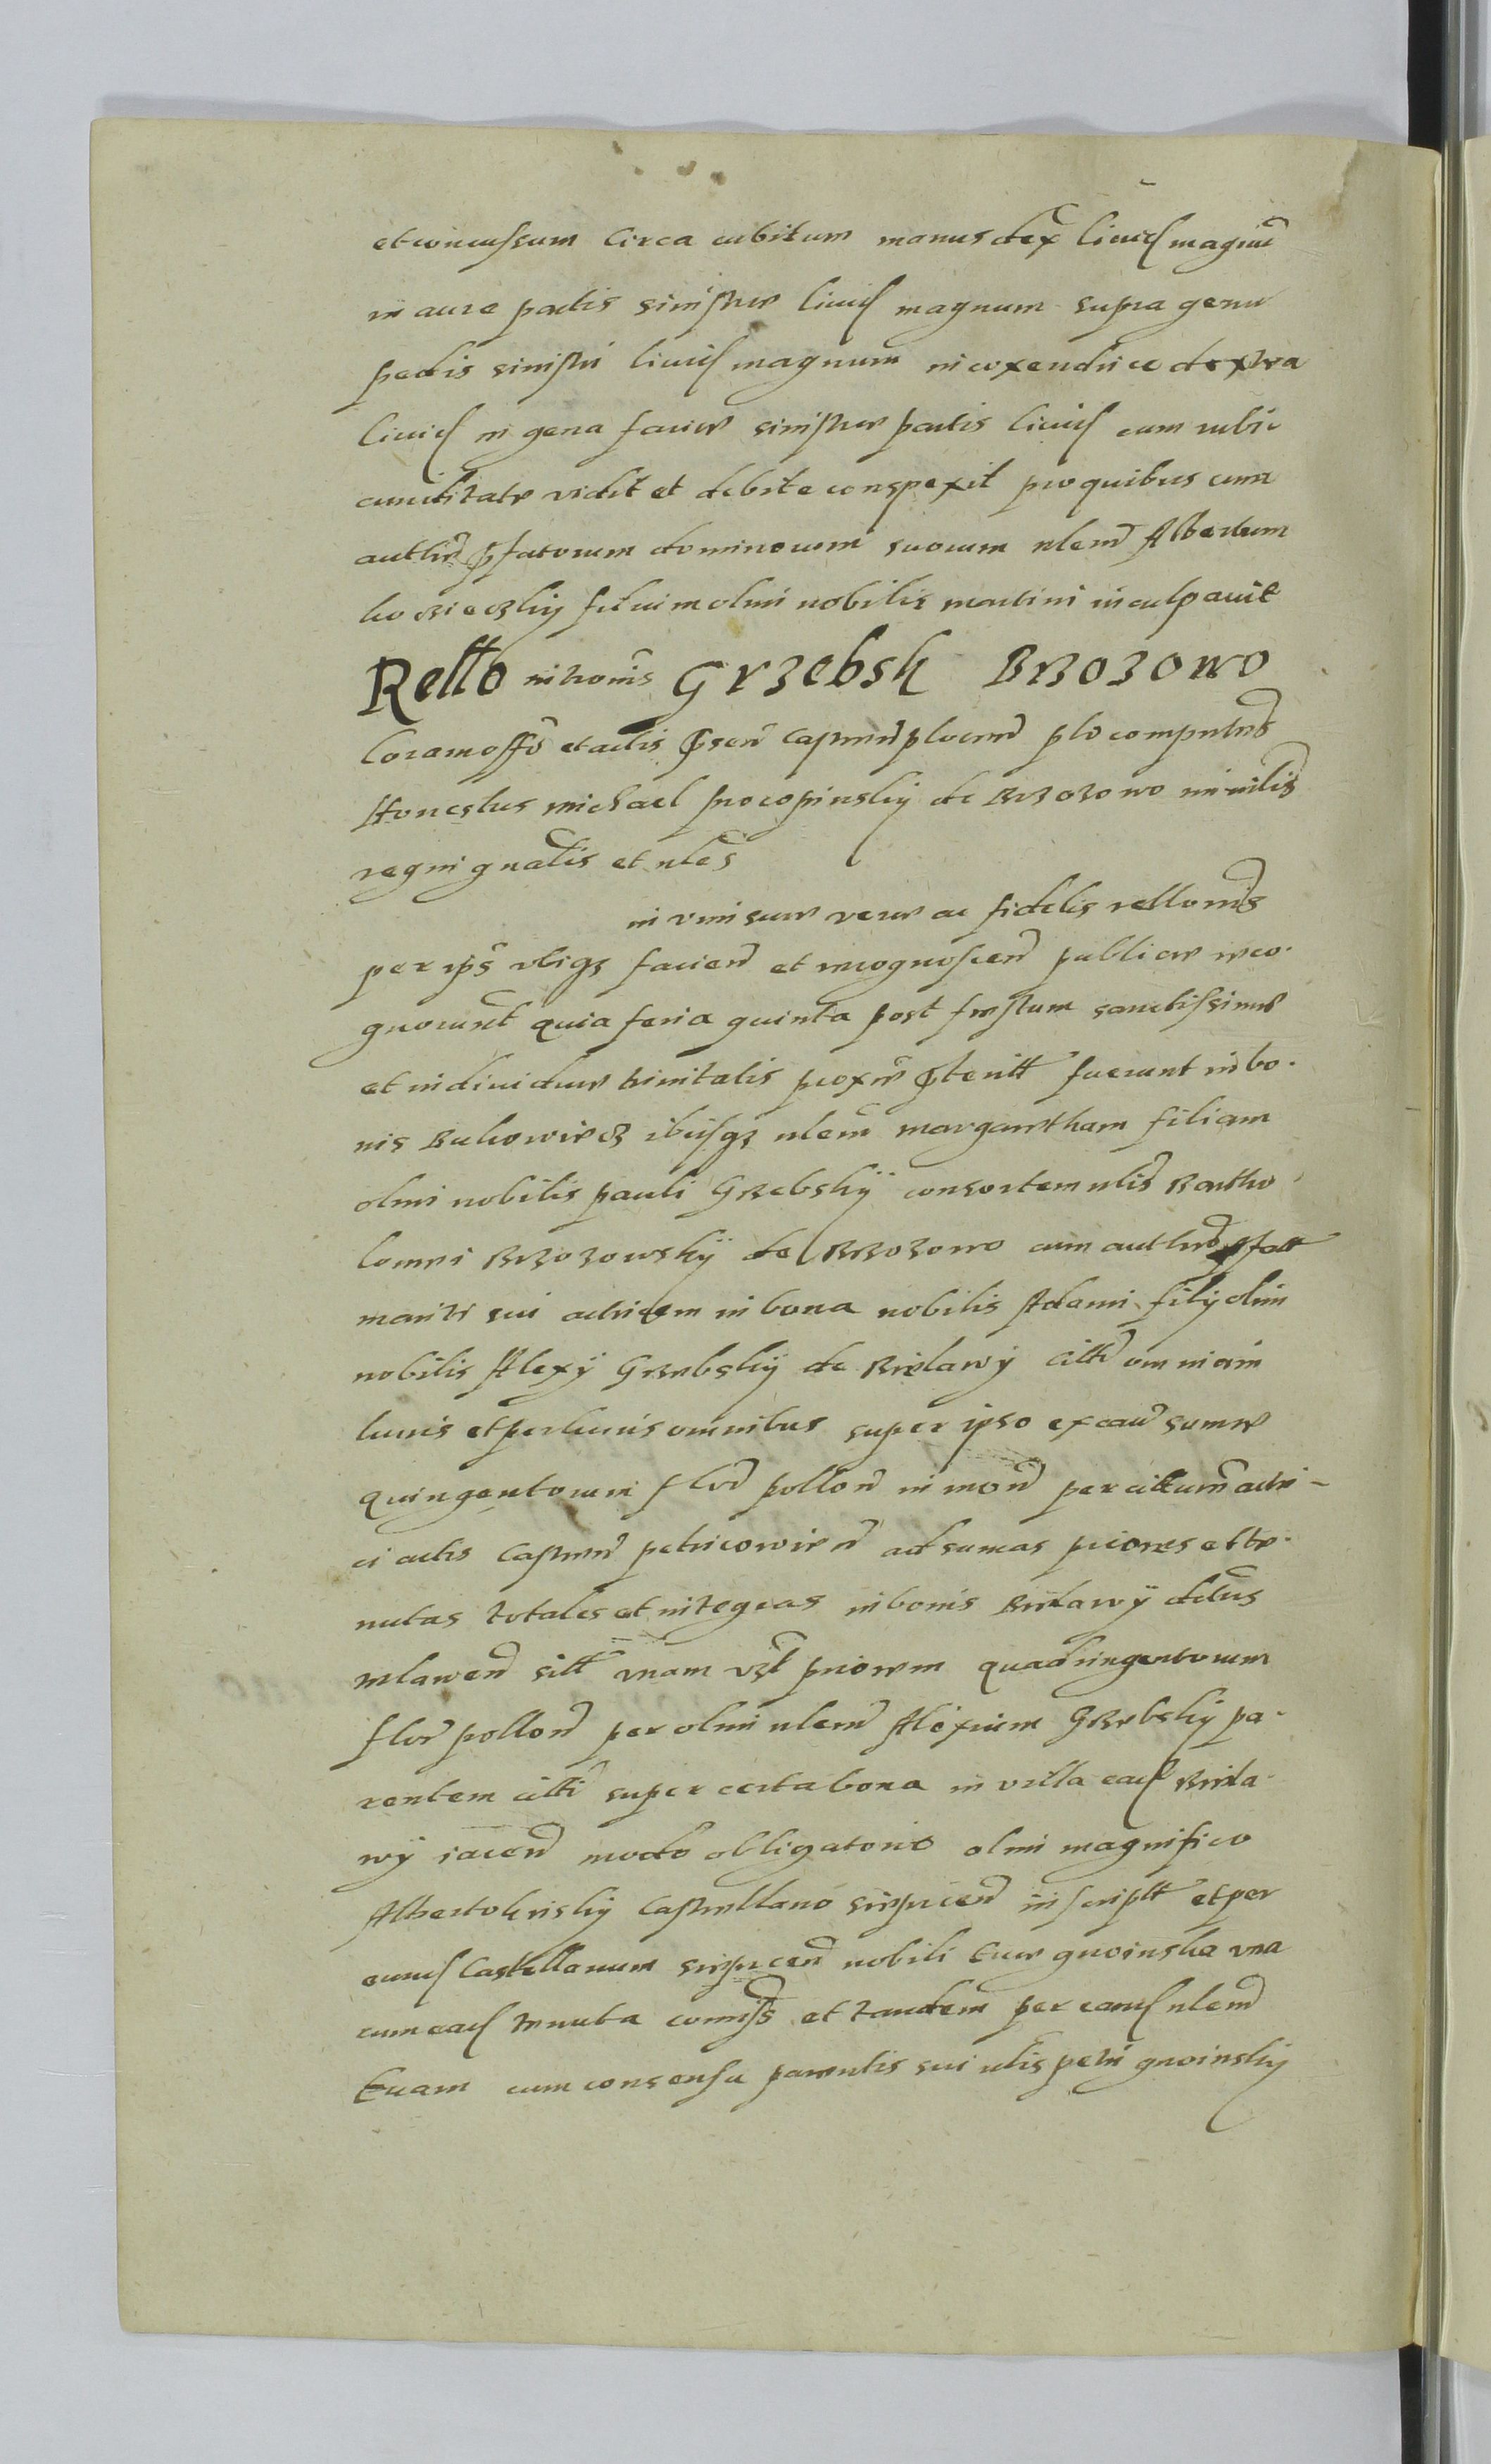 et concussum Circa cubitum manus dex livid magnũ
in aure partis sinistre livid magnum supra genu
pedis sinistri livid magnum in coxendice dextra
livid in gena faciei sinistre partis livid cum rubi-
cunditate vidit et debite conspexit pro quibus cum
authẽ pfatorum dominorum suorum nlem Albertum
filium olim nobilis martini inculpavit
Rello intromĩs Grzebsk Brzozowo
Coram offõ et actis pñ Castren plocen plo computus
Honestus michael procopinskij de Brzozowo ministlis
regni gnalis et nles
in vim sue vere ac fidelis relloniš
per ipš utiqz faciend et recognoscend publice reco-
gnorunt quia feria quinta post festum sanctissime
et individue trinitatis proxe pterit fuerunt in bo-
nis Bukowiecz ibusqz nlem margaretham filiam
olim nobilis pauli Grzebskij consortem nlis Bartho-
lomei Brzozowskÿ de Brzozowo cum authe pfatt
mariti sui actricem in bona nobilis Adami filij olim
nobilis Alexÿ Grzebskij de Bielawÿ citti omniaim
lucris et perlucris omnibus super ipso ex cauš sume
quingentorum flor pollon in mon per cittum actri-
ci actis Castren petricovien ad sumas priores et te-
nutas totales et integras in bonis Bielawÿ dctus
mlawen sitt unam vzl priorem quadringentorum
flor pollon per olim nlem Alexium Grzebskij pa-
rentem citti super certa bona in villa ead Biela-
wÿ iacen modo obligatorio olim magnifico
Alberto kriskij Castellano sieprcen inscriptt et per
eund Castellanum sieprcen nobili Eve gnoinska una
cum ead tenuta comiss et tandem per eand nlem
Evam cum consensu parentis sui nlis petri gnoinskij